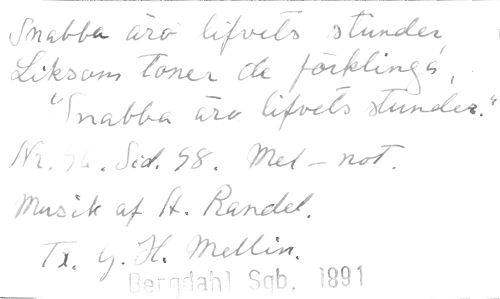 Snabba äro lifvets stunder,
Liksom toner de förklinga,
"Snabba äro lifvets stunder."
Nr. 56. Sid. 58. Mel-not.
Musik af A. Randel.
Tx. G. H. Mellin.
Bergdahl Sgb. 1891